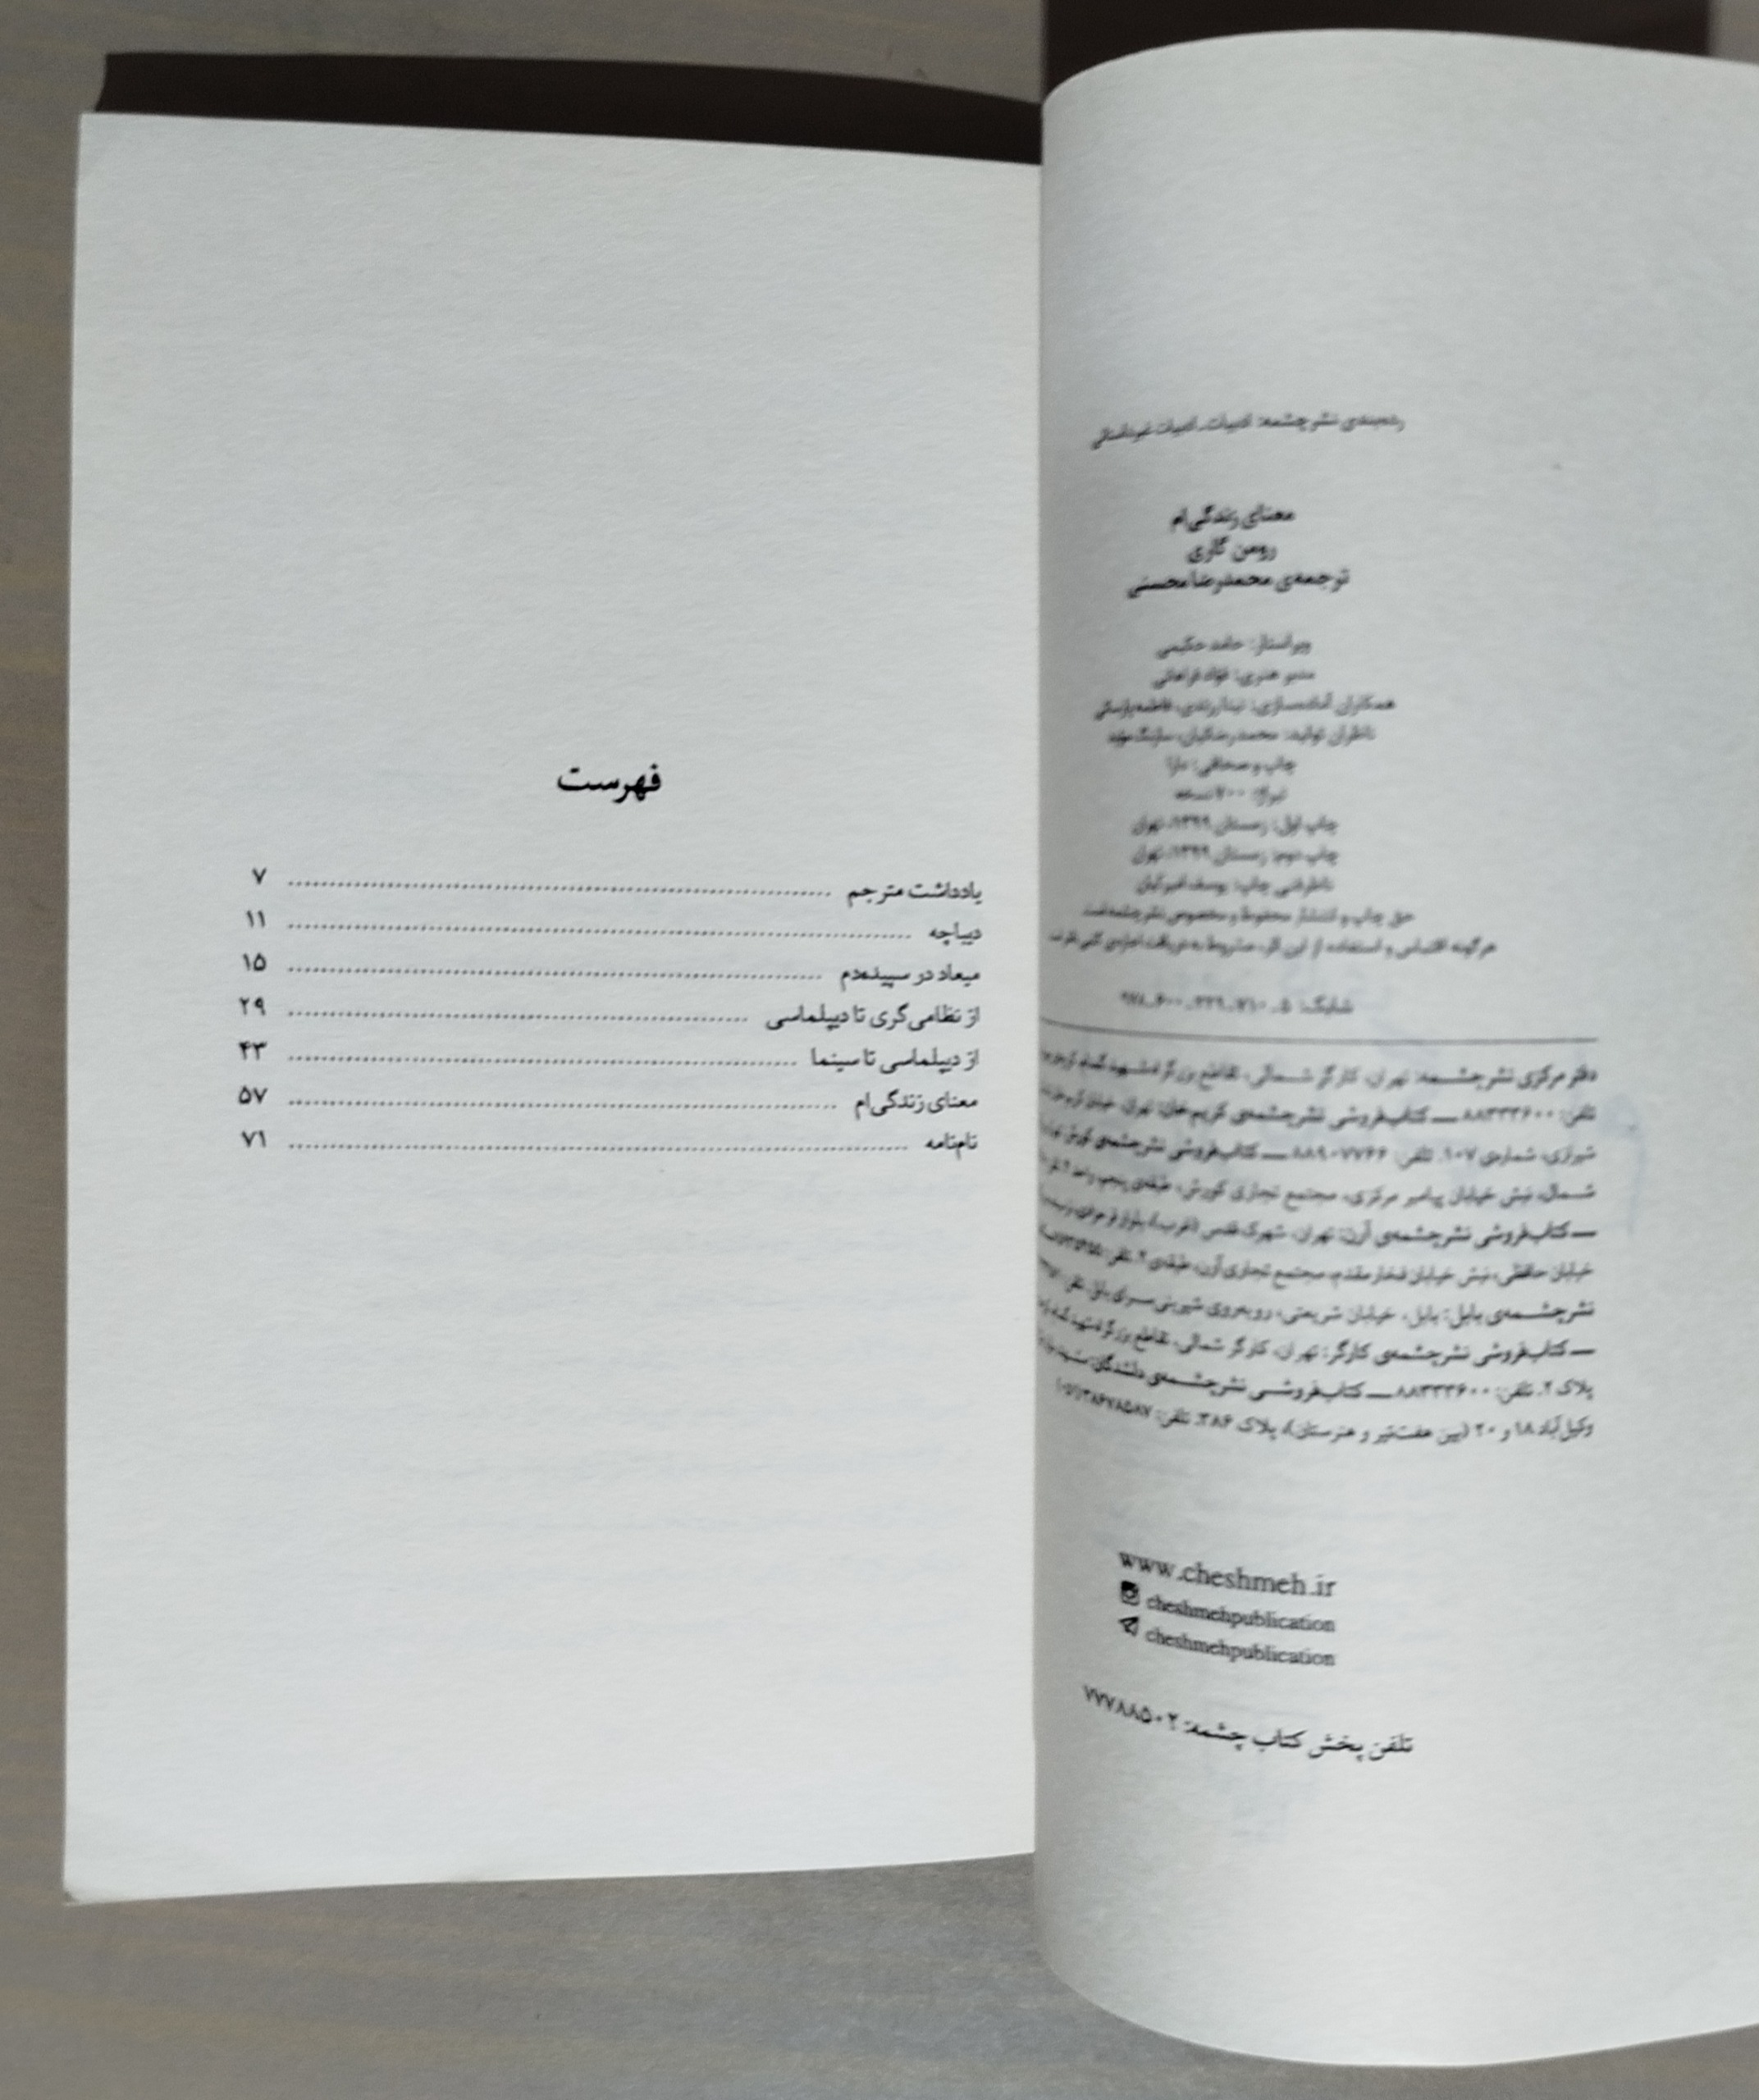 رده‌بندی نشرچشمه: ادبیات ـ ادبیات غیرداستانی
معنای زندگی‌ام
رومن گاری
ترجمه‌ی محمدرضا محسنی
ویراستار: حامد حکیمی
مدیر هنری: فؤاد فراهانی
همکاران آماده‌سازی:
ناظران تولید: محمدرضا
چاپ و صحافی: دارا
تیراژ: ۷۰۰ نسخه
چاپ اول: زمستان ۱۳۹۹، تهران
چاپ دوم: زمستان ۱۳۹۹، تهران
ناظر فنی چاپ: یوسف امیرکیان
حق چاپ و انتشار محفوظ و مخصوص نشرچشمه است.
هرگونه اقتباس و استفاده از این اثر، مشروط به دریافت اجازه‌ی کتبی ناشر است.
شابک:
دفتر مرکزی نشرچشمه: تهران، کارگر شمالی، تقاطع بزرگراه شهید گمنام،
تلفن: ۸۸۳۳۳۶۰۰ — کتاب‌فروشی نشرچشمه‌ی کریم‌خان: تهران، خیابان
شیرازی، شماره‌ی ۱۰۷. تلفن: ۸۸۹۰۷۷۶۶ — کتاب‌فروشی نشرچشمه‌ی کورش:
شمال، نبش خیابان پیامبر مرکزی، مجتمع تجاری کورش، طبقه‌ی پنجم، واحد ۴.
— کتاب‌فروشی نشرچشمه‌ی آرن: تهران، شهرک قدس (غرب)، بلوار فرحزادی،
خیابان حافظی، نبش خیابان فخارمقدم، مجتمع تجاری آرن، طبقه‌ی ۲. تلفن:
نشرچشمه‌ی بابل: بابل، خیابان شریعتی، روبه‌روی شیرینی‌سرای بابل. تلفن:
— کتاب‌فروشی نشرچشمه‌ی کارگر: تهران، کارگر شمالی، تقاطع بزرگراه شهید گمنام،
پلاک ۲. تلفن: ۸۸۳۳۳۶۰۰ — کتاب‌فروشی نشرچشمه‌ی دلشدگان: مشهد،
وکیل‌آباد ۱۸ و ۲۰ (بین هفت‌تیر و هنرستان)، پلاک ۳۸۶. تلفن: ۳۸۶۷۸۵۸۷ (۰۵۱)
www.cheshmeh.ir
cheshmehpublication
cheshmehpublication
تلفن پخش کتاب چشمه: ۷۷۷۸۸۵۰۲
فهرست
یادداشت مترجم ۷
دیباچه ۱۱
میعاد در سپیده‌دم ۱۵
از نظامی‌گری تا دیپلماسی ۲۹
از دیپلماسی تا سینما ۴۳
معنای زندگی‌ام ۵۷
نام‌نامه ۷۱